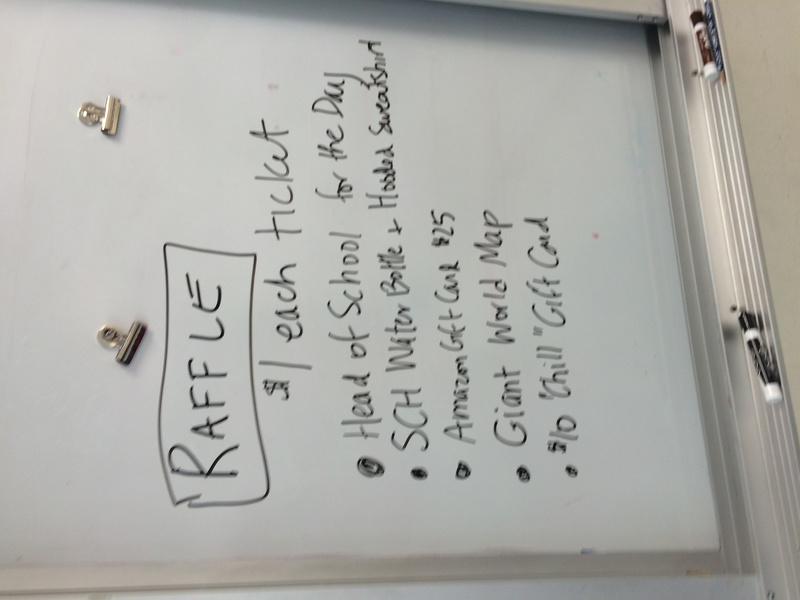 RAFFLE
$1 each ticket
• Head of School for the Day
• SCH Water Bottle & Hooded Sweatshirt
• Amazon Gift Card $25
• Giant World Map
• $10 "Chill" Gift Card